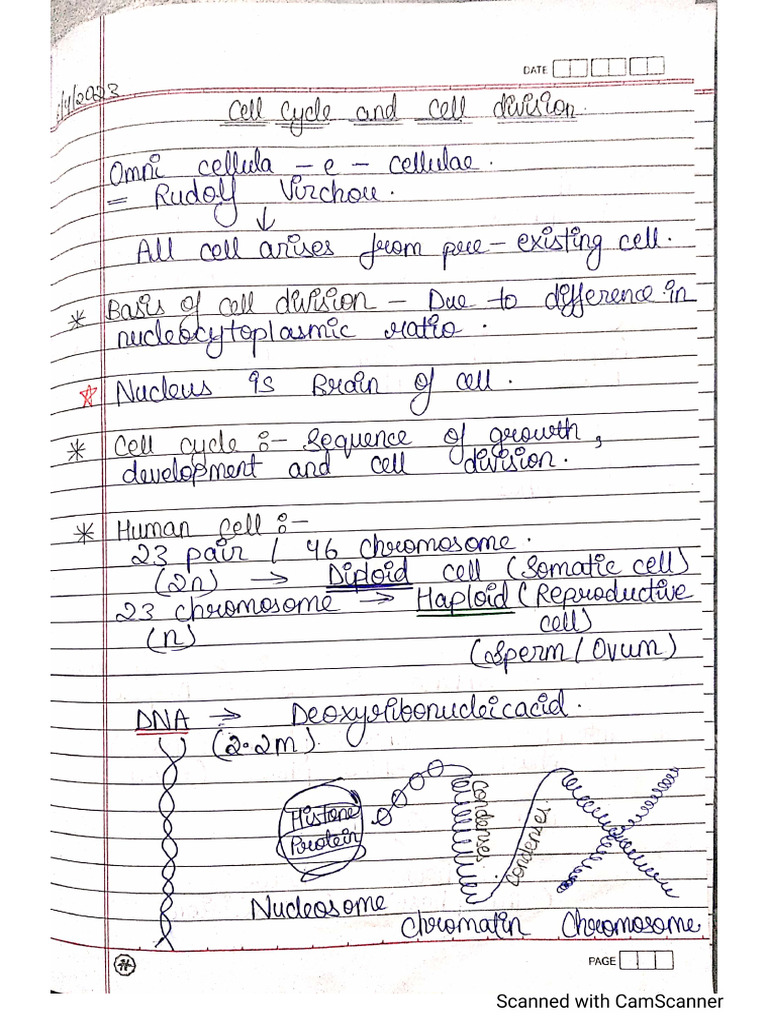 DATE
/4/2023
Cell Cycle and Cell division.
Omni cellula - e - cellulae.
= Rudolf Virchow.
↓
All cell arises from pre-existing cell.
* Basis of cell division - Due to difference in
nucleocytoplasmic ratio.
☆ Nucleus is Brain of cell.
* Cell cycle :- Sequence of growth,
development and cell division.
* Human cell :-
23 pair / 46 chromosome.
(2n) → Diploid cell (Somatic cell)
23 chromosome → Haploid (Reproductive
cell)
(n)
(Sperm / Ovum)
DNA → Deoxyribonucleicacid.
(2.2m).
Histone
Protein
condenses
condenses.
Nucleosome
Chromatin Chromosome
PAGE
Scanned with CamScanner